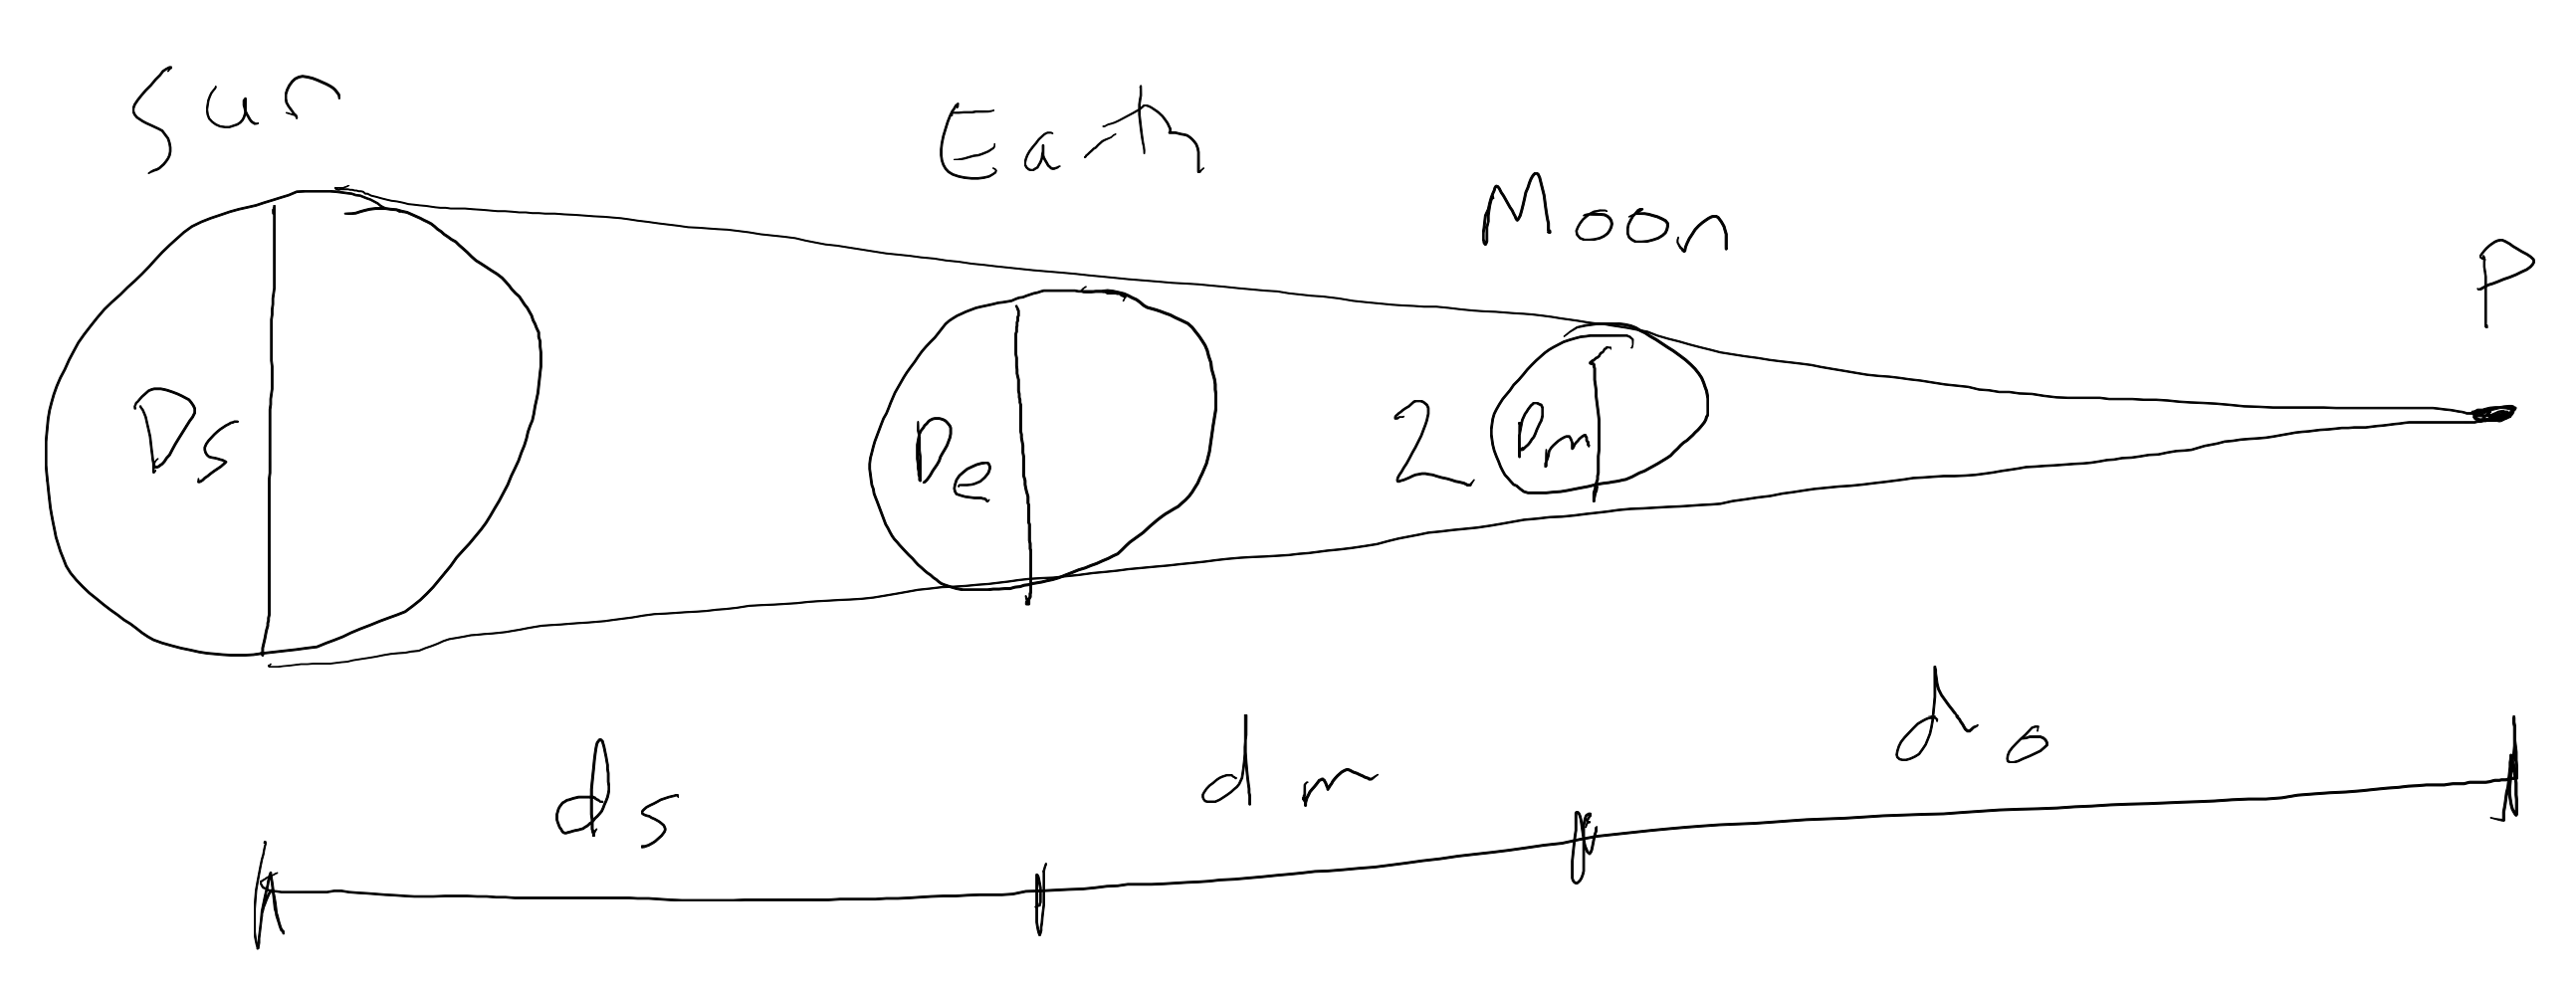 Sun
Earth
Moon
P
Ds
De
2 Dm
ds
dm
do